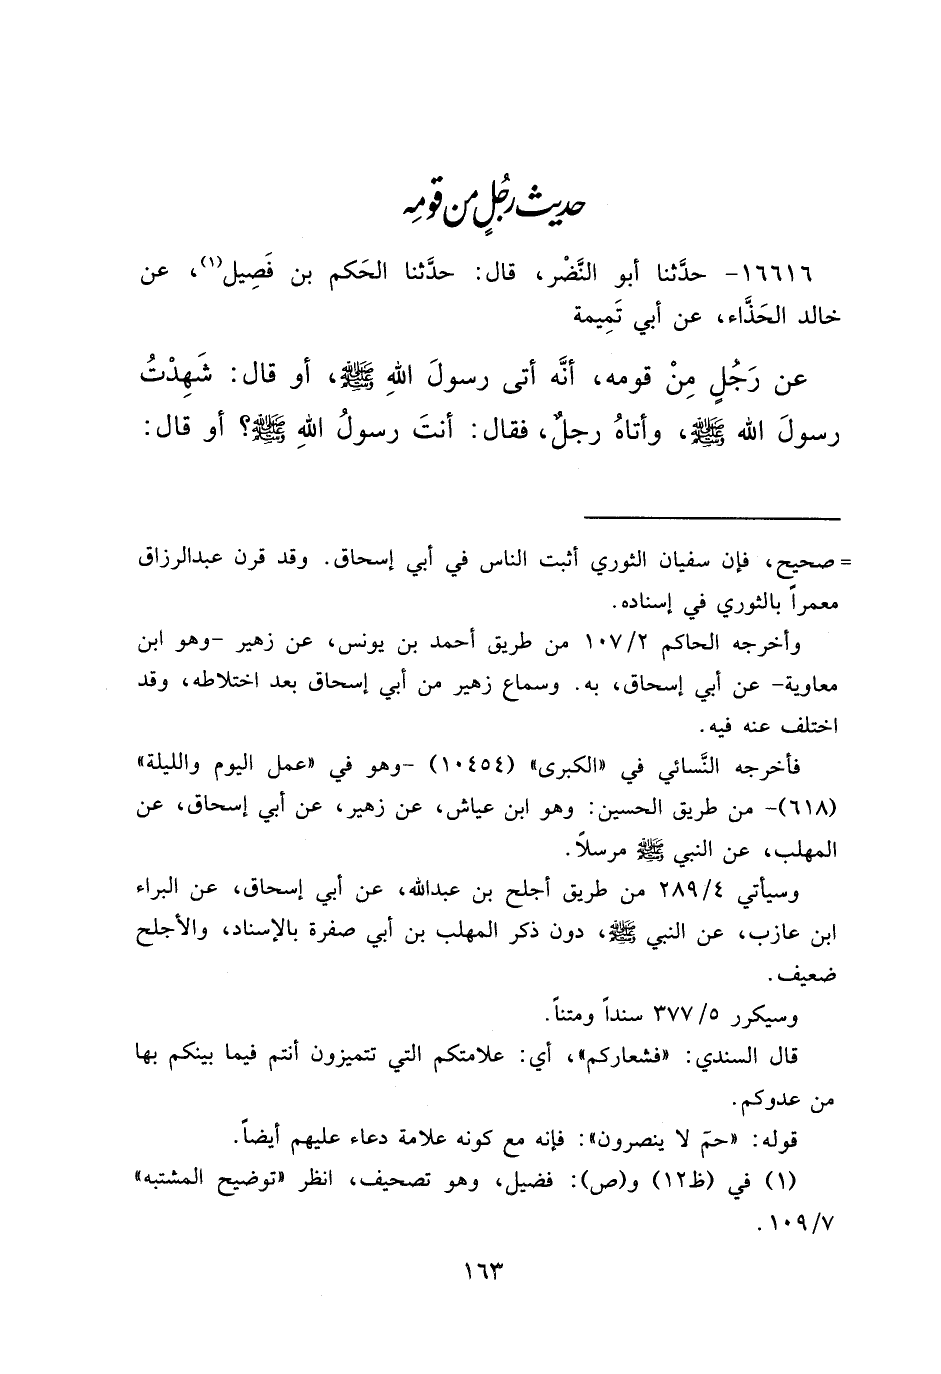 حديث رجُلٍ من قومِه
١٦٦١٦- حدَّثنا أبو النَّضْر، قال: حدَّثنا الحَكم بن فَصِيل(١)، عن
خالد الحَذَّاء، عن أبي تَمِيمة
عن رَجُلٍ مِنْ قومه، أنَّه أتى رسولَ اللهِ ﷺ، أو قال: شَهِدْتُ
رسولَ الله ﷺ، وأتاهُ رجلٌ، فقال: أنتَ رسولُ اللهِ ﷺ؟ أو قال:
= صحيح، فإن سفيان الثوري أثبت الناس في أبي إسحاق. وقد قرن عبدالرزاق
معمراً بالثوري في إسناده.
وأخرجه الحاكم ١٠٧/٢ من طريق أحمد بن يونس، عن زهير -وهو ابن
معاوية- عن أبي إسحاق، به. وسماع زهير من أبي إسحاق بعد اختلاطه، وقد
اختلف عنه فيه.
فأخرجه النَّسائي في «الكبرى» (١٠٤٥٤) -وهو في «عمل اليوم والليلة»
(٦١٨)- من طريق الحسين: وهو ابن عياش، عن زهير، عن أبي إسحاق، عن
المهلب، عن النبي ﷺ مرسلاً.
وسيأتي ٢٨٩/٤ من طريق أجلح بن عبدالله، عن أبي إسحاق، عن البراء
ابن عازب، عن النبي ﷺ، دون ذكر المهلب بن أبي صفرة بالإسناد، والأجلح
ضعيف.
وسيكرر ٣٧٧/٥ سنداً ومتناً.
قال السندي: «فشعاركم»، أي: علامتكم التي تتميزون أنتم فيما بينكم بها
من عدوكم.
قوله: «حمّ لا ينصرون»: فإنه مع كونه علامة دعاء عليهم أيضاً.
(١) في (ظ١٢) و(ص): فضيل، وهو تصحيف، انظر «توضيح المشتبه»
١٠٩/٧.
١٦٣